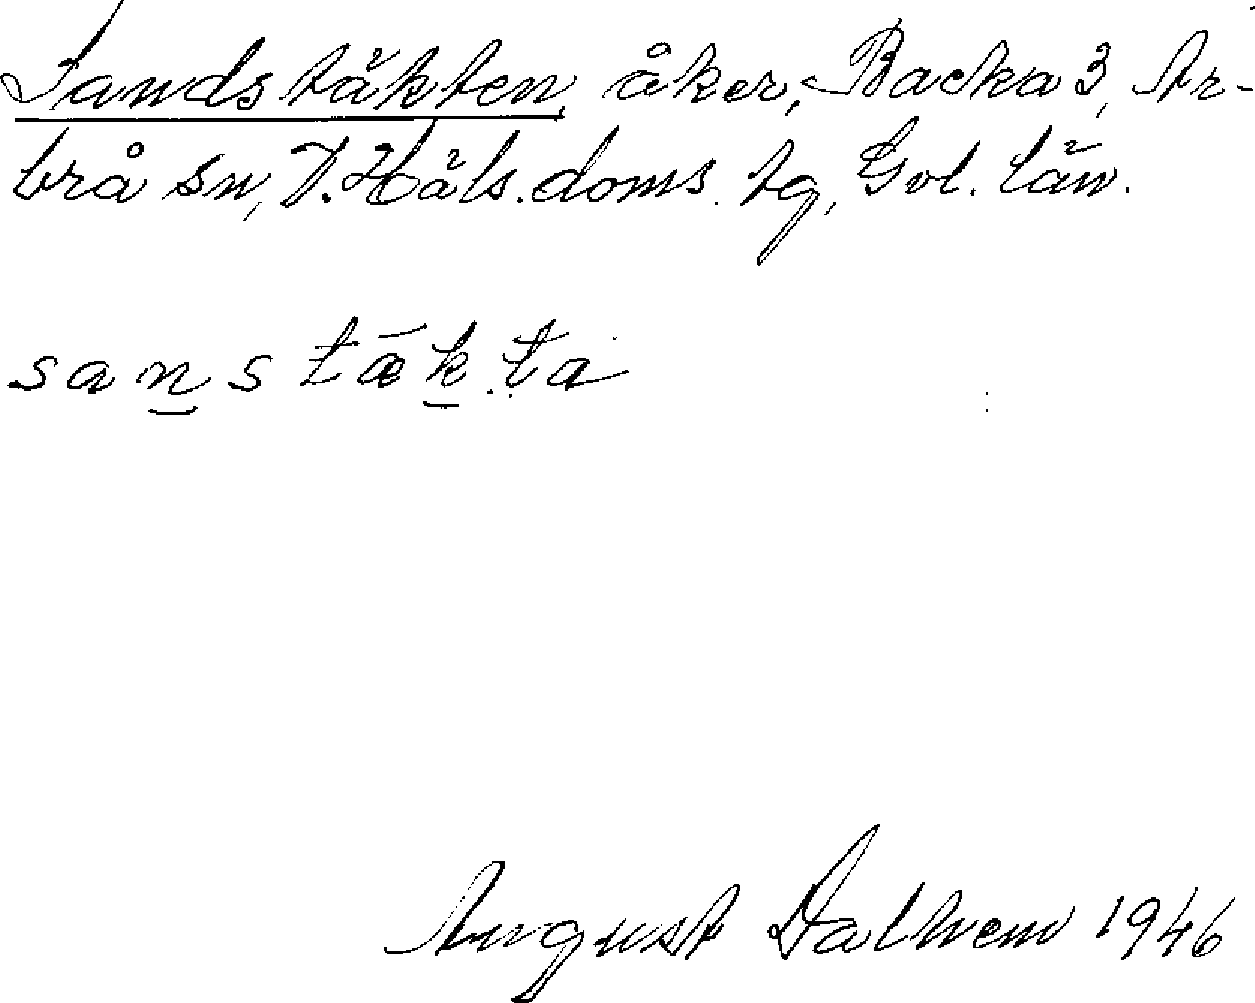 Sandstäkten, åker, Backa 3, Ar-
brå sn, V. Häls. doms. tg, Gvl. län.
sanstǣkta
August Dalhem 1946